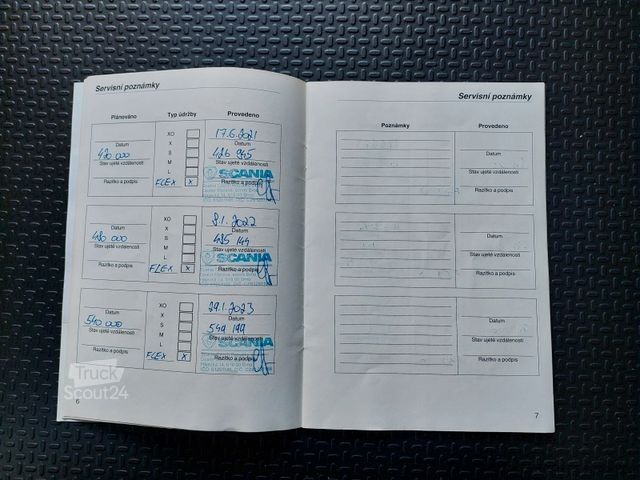 Servisní poznámky
Plánováno Typ údržby Provedeno
XO 17.6.2021
X Datum
Datum S 426 945
420 000 M Stav ujeté vzdálenosti
Stav ujeté vzdálenosti L SCANIA
Razítko a podpis FLEX X Razítko a podpis
XO 8.1.2022
X Datum
Datum S 485 144
480 000 M Stav ujeté vzdálenosti
Stav ujeté vzdálenosti L SCANIA
Razítko a podpis FLEX X Razítko a podpis
XO 29.1.2023
X Datum
Datum S 549 199
540 000 M Stav ujeté vzdálenosti
Stav ujeté vzdálenosti L SCANIA
Razítko a podpis FLEX X Razítko a podpis
6
Truck
Scout24
Servisní poznámky
Poznámky Provedeno
Datum
Stav ujeté vzdálenosti
Razítko a podpis
Datum
Stav ujeté vzdálenosti
Razítko a podpis
Datum
Stav ujeté vzdálenosti
Razítko a podpis
7